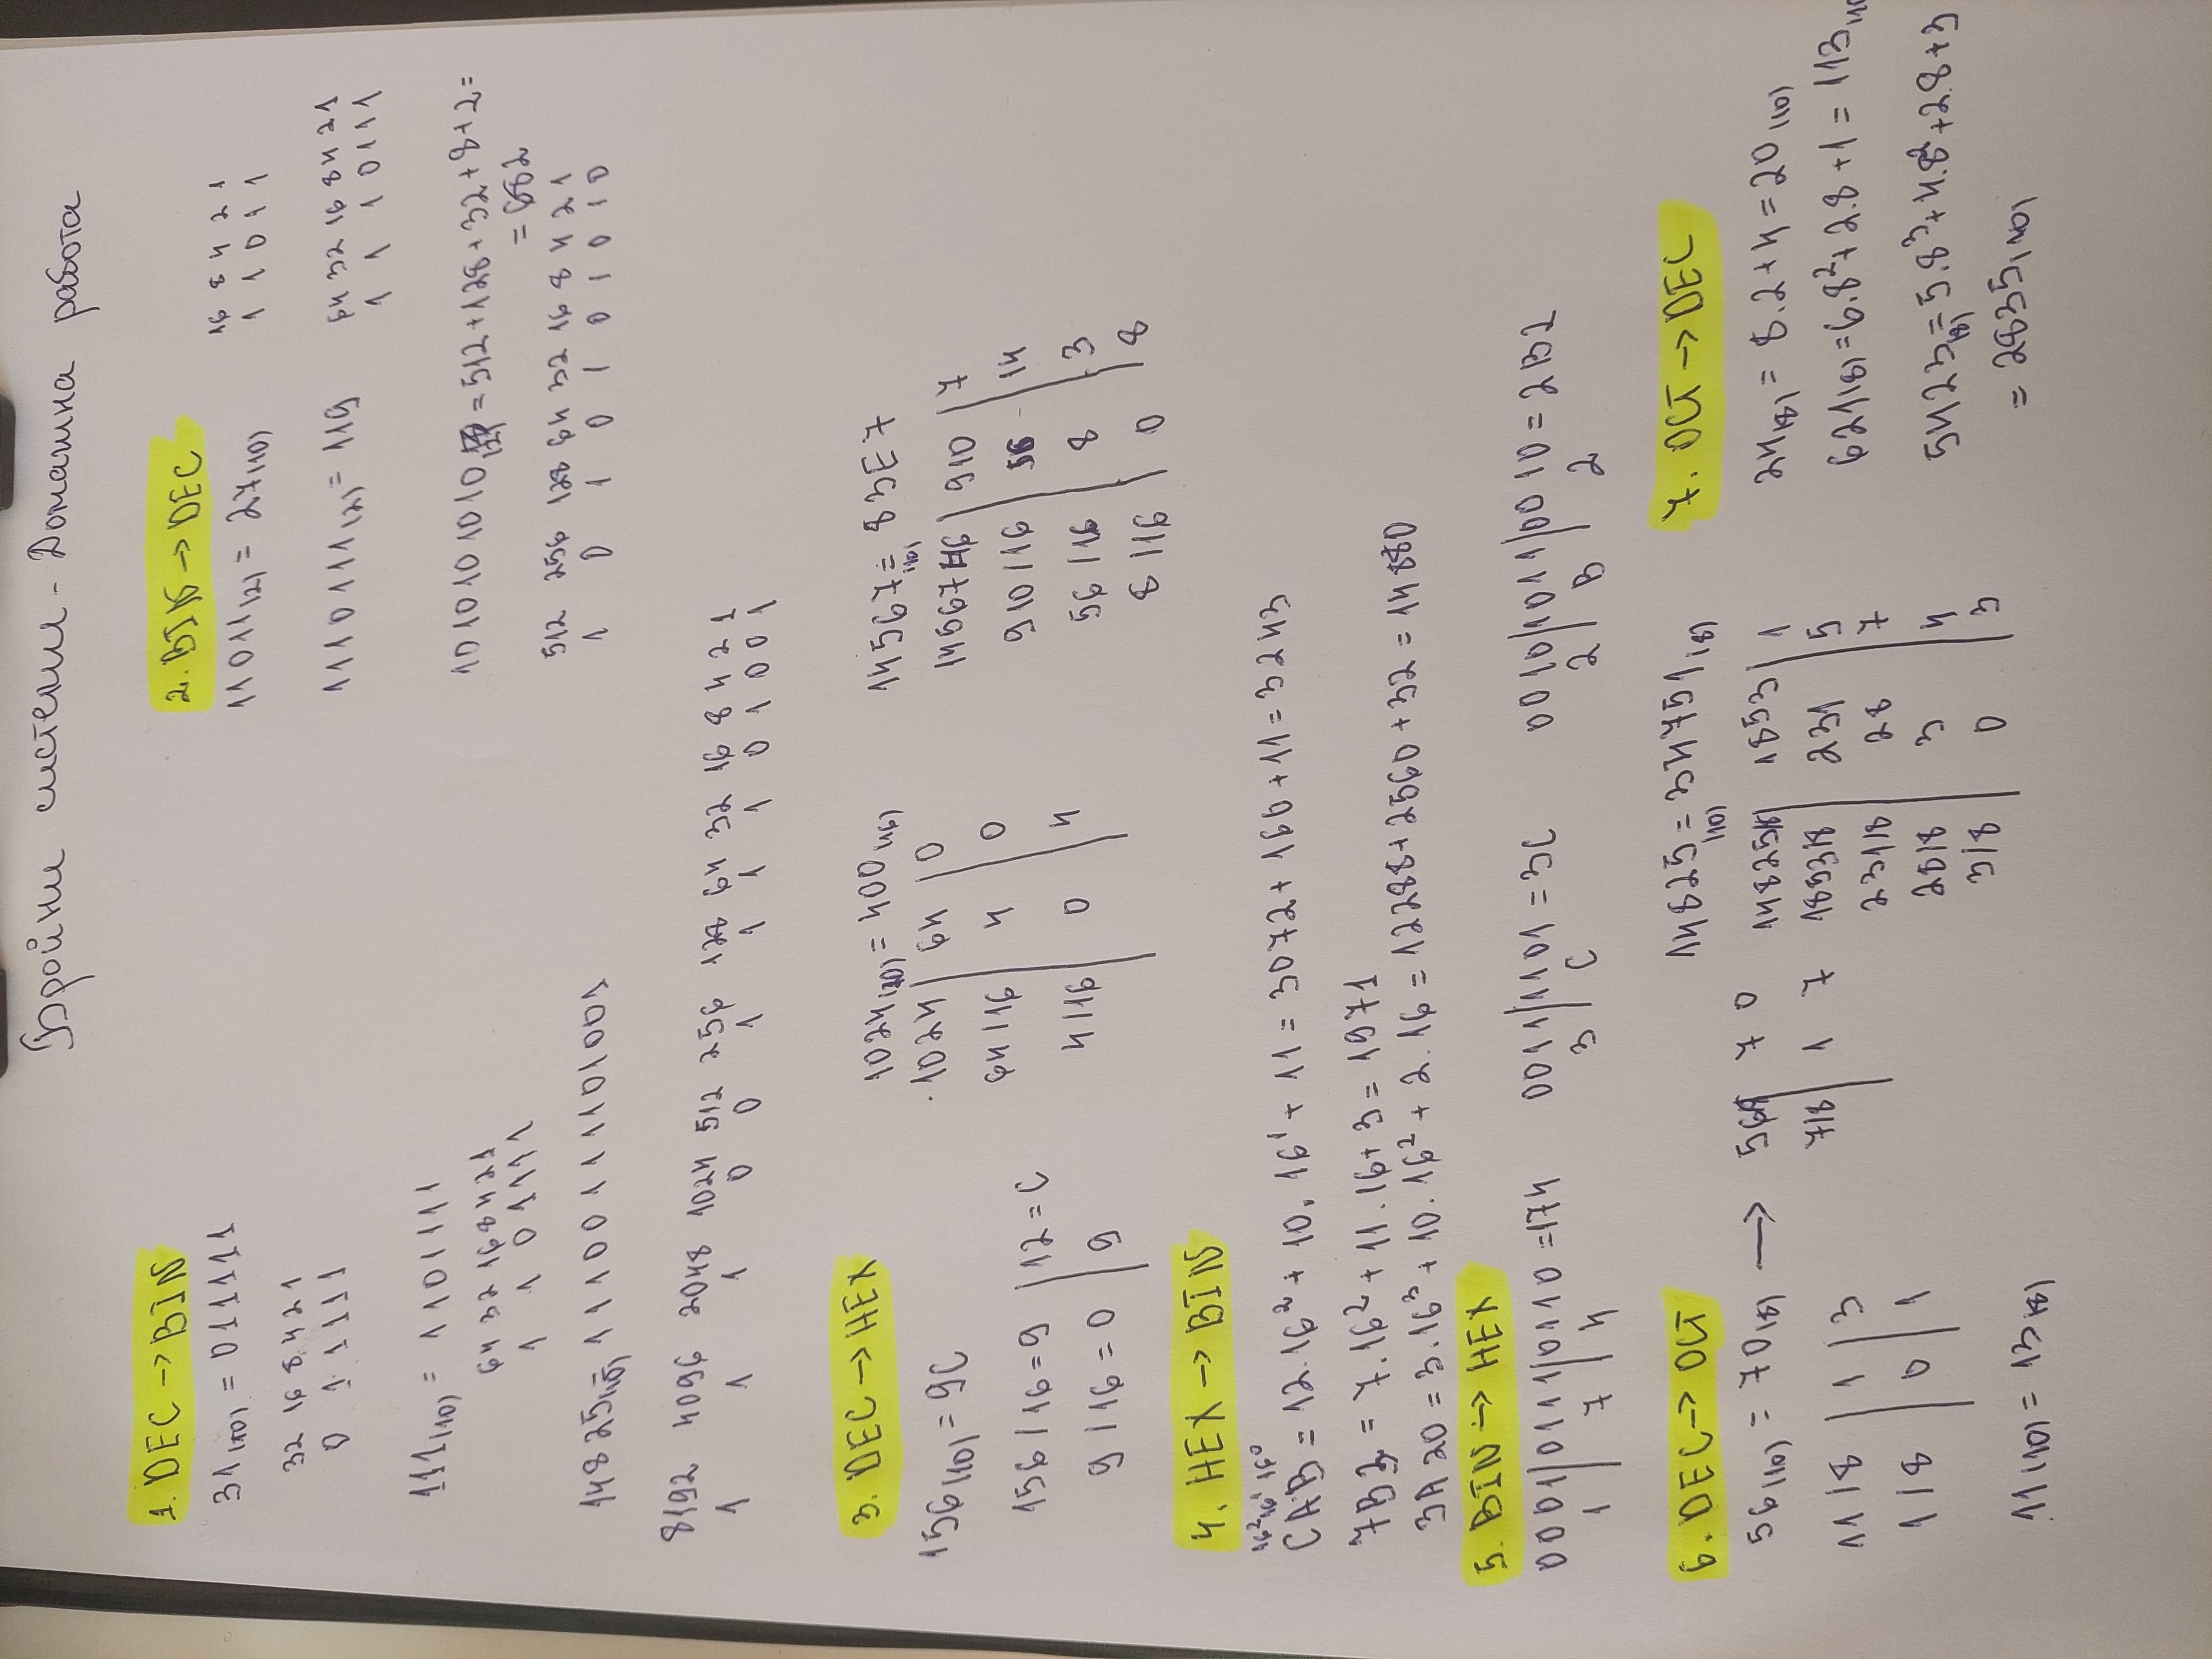 Бройни системи - Домашна работа
1. DEC → BIN
31(10) = 011111
32 16 8 4 2 1
0 1 1 1 1 1
111(10) = 1101111
64 32 16 8 4 2 1
1 1 0 1 1 1 1
14825(10) = 11100111101001
8192 4096 2048 1024 512 256 128 64 32 16 8 4 2 1
1 1 1 0 0 1 1 1 1 0 1 0 0 1
2. BIN → DEC
11011(2) = 27(10)
16 8 4 2 1
1 1 0 1 1
1110111(2) = 119
64 32 16 8 4 2 1
1 1 1 0 1 1 1
1010101010(2) = 512+128+32+8+2=
= 682
512 256 128 64 32 16 8 4 2 1
1 0 1 0 1 0 1 0 1 0
3. DEC → HEX
156(10) = 9C
156 / 16 = 9 | 12 = C
9 / 16 = 0 | 9
1024(10) = 400(16)
1024 | 64 | 0
64 / 16 | 4 | 0
4 / 16 | 0 | 4
14567(10) = 83E7
14567/16 | 910 | 7
910 / 16 | 56 | 14
56 / 16 | 8 | 3
8 / 16 | 0 | 8
4. HEX → BIN
16² 16¹ 16⁰
CAB = 12.16² + 10.16¹ + 11 = 3072 + 160 + 11 = 3243
7B3 = 7.16² + 11.16 + 3 = 1971
3A20 = 3.16³ + 10.16² + 2.16 = 12288 + 2560 + 32 = 14880
5. BIN → HEX
0001/0111/0110 = 174
1 / 7 / 4
0011/1101 = 3C
3 / C
0010/1011/0010 = 2B2
2 / B / 2
6. DEC → OCT
56(10) = 70(8) →
56/8 | 7 0
7/8 | 1 7
11 / 8 | 1 | 3
1 / 8 | 0 | 1
11(10) = 13(8)
14825(10) = 34751(8)
14825/8 | 1853 | 1
1853/8 | 231 | 5
231/8 | 28 | 7
28/8 | 3 | 4
3/8 | 0 | 3
7. OCT → DEC
24(8) = 8.2+4 = 20(10)
621(8) = 6.8² + 2.8 + 1 = 113(10
5423(8) = 5.8³ + 4.8² + 2.8 + 3
= 2835(10)